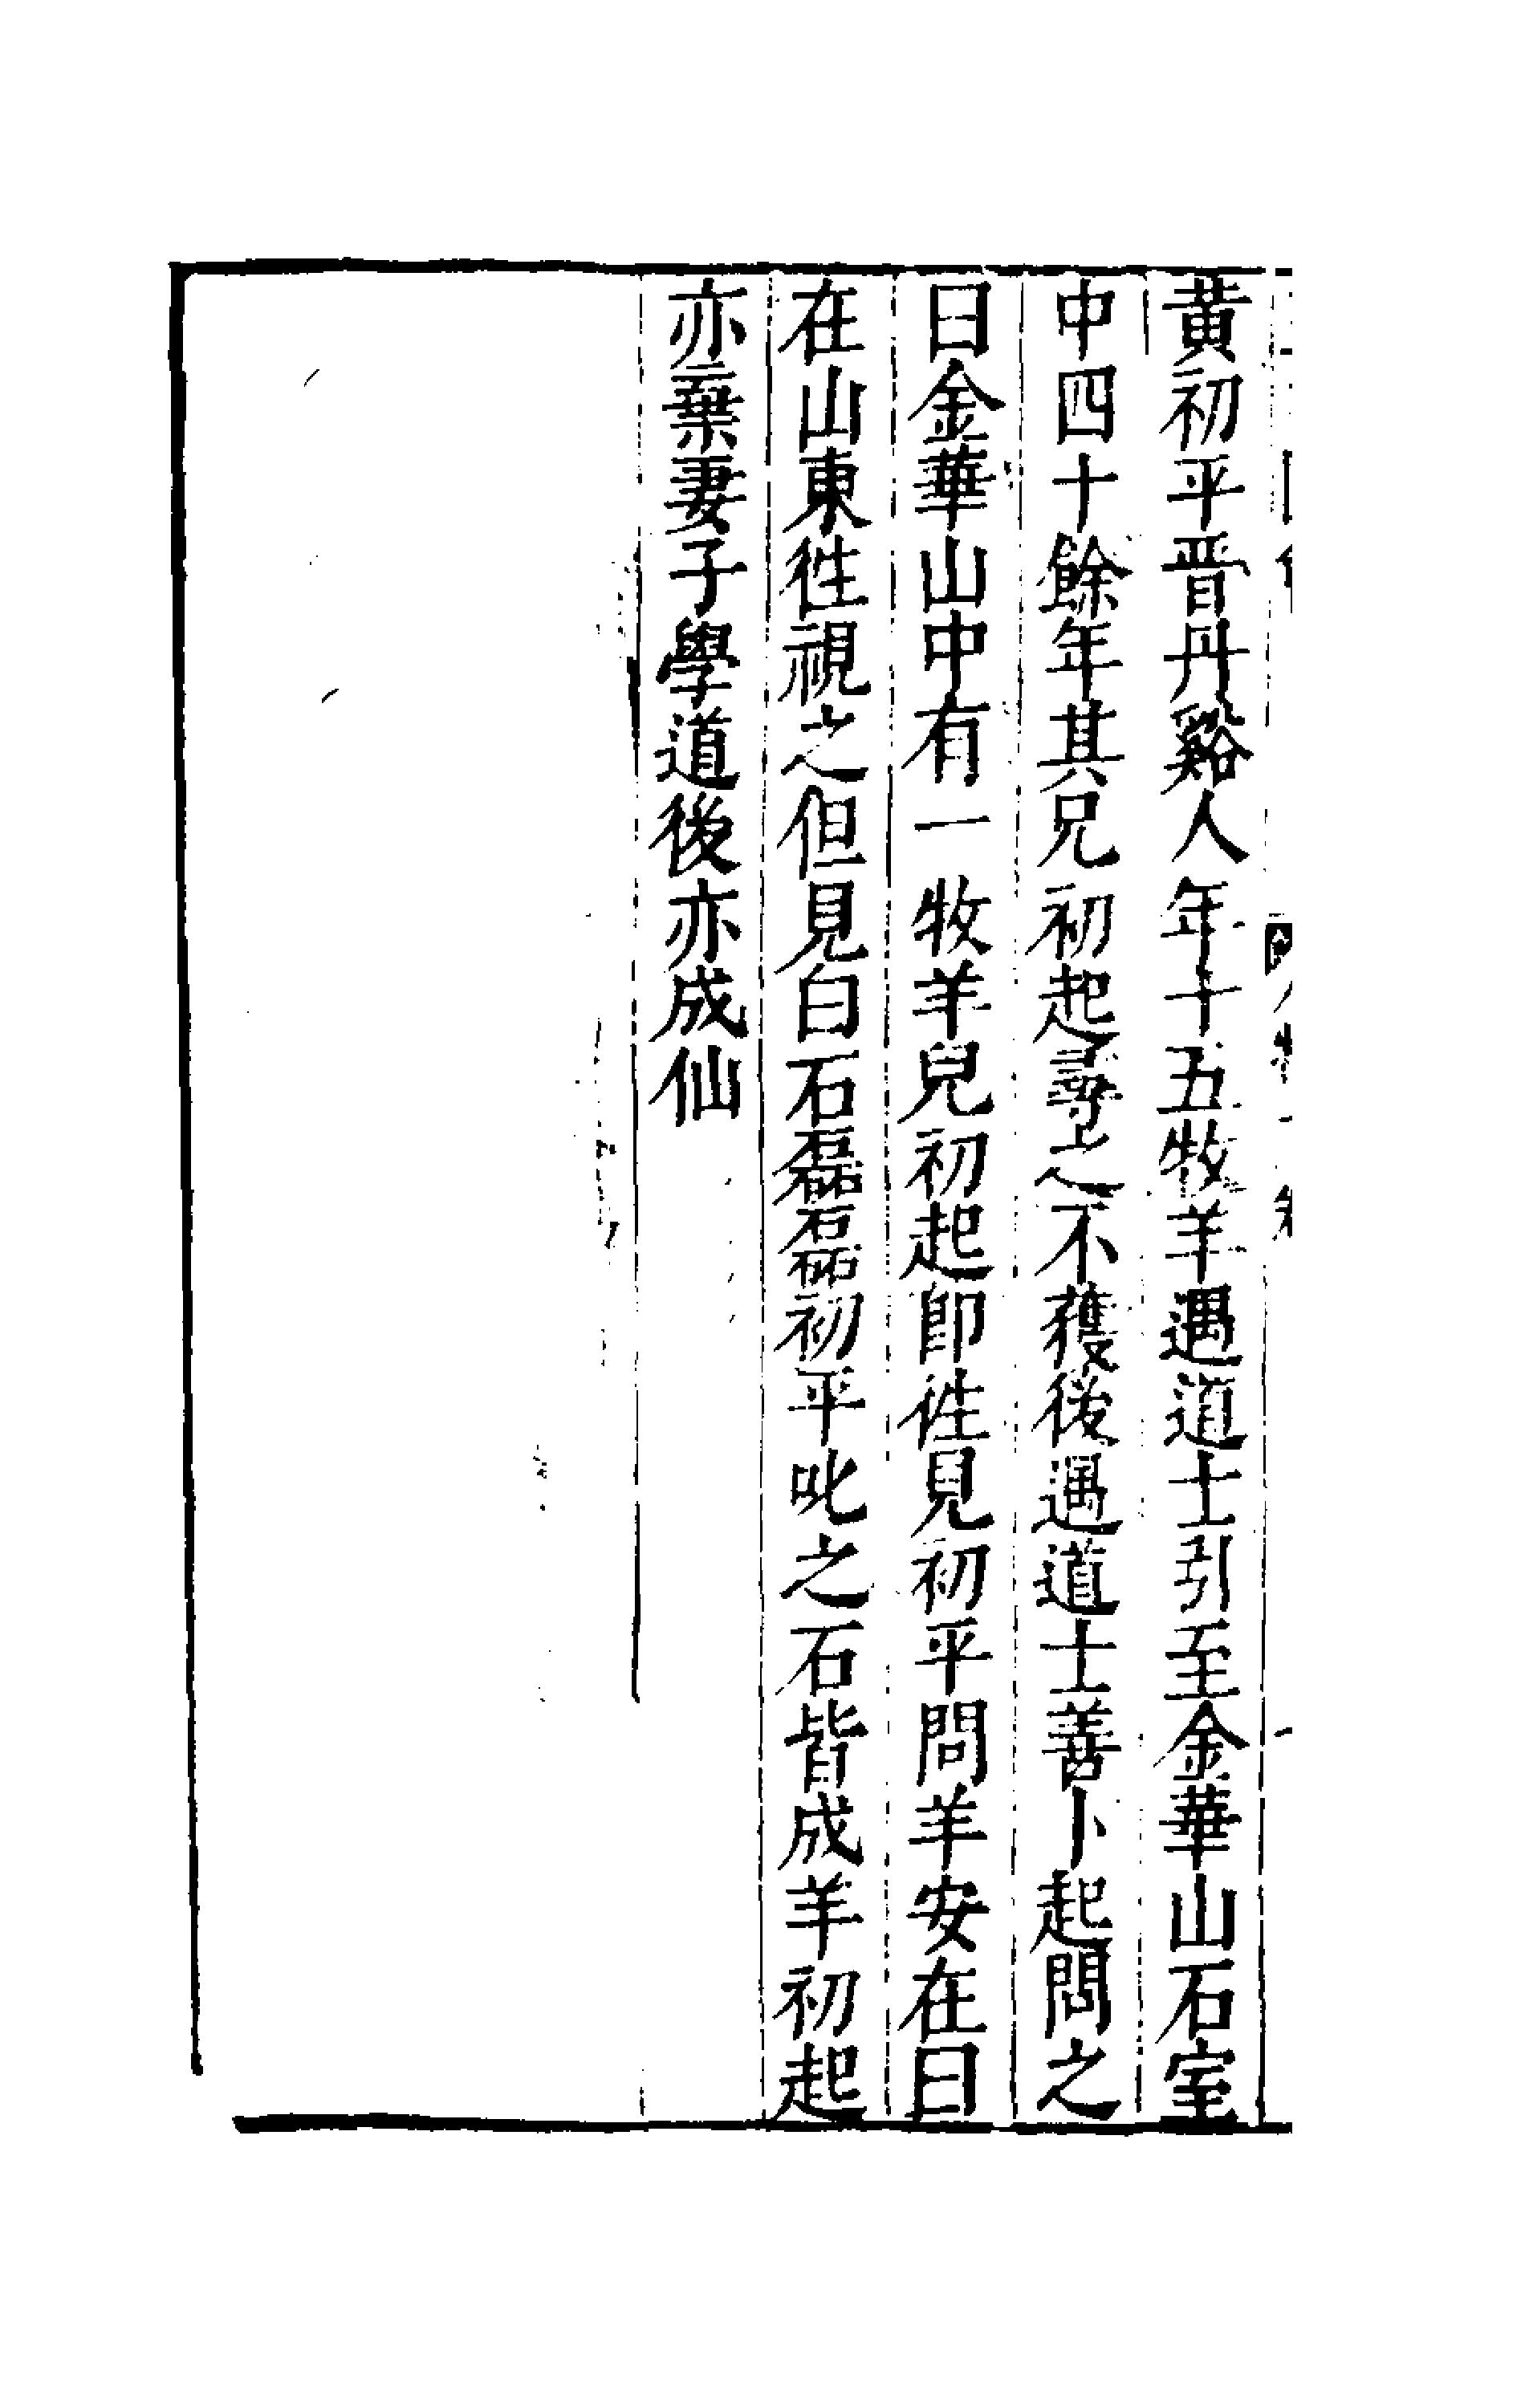 黃初平晉丹谿人年十五牧羊遇道士引至金華山石室
中四十餘年其兄初起尋之不獲後遇道士善卜起問之
曰金華山中有一牧羊兒初起卽徃見初平問羊安在曰
在山東徃視之但見白石磊磊初平叱之石皆成羊初起
亦棄妻子學道後亦成仙